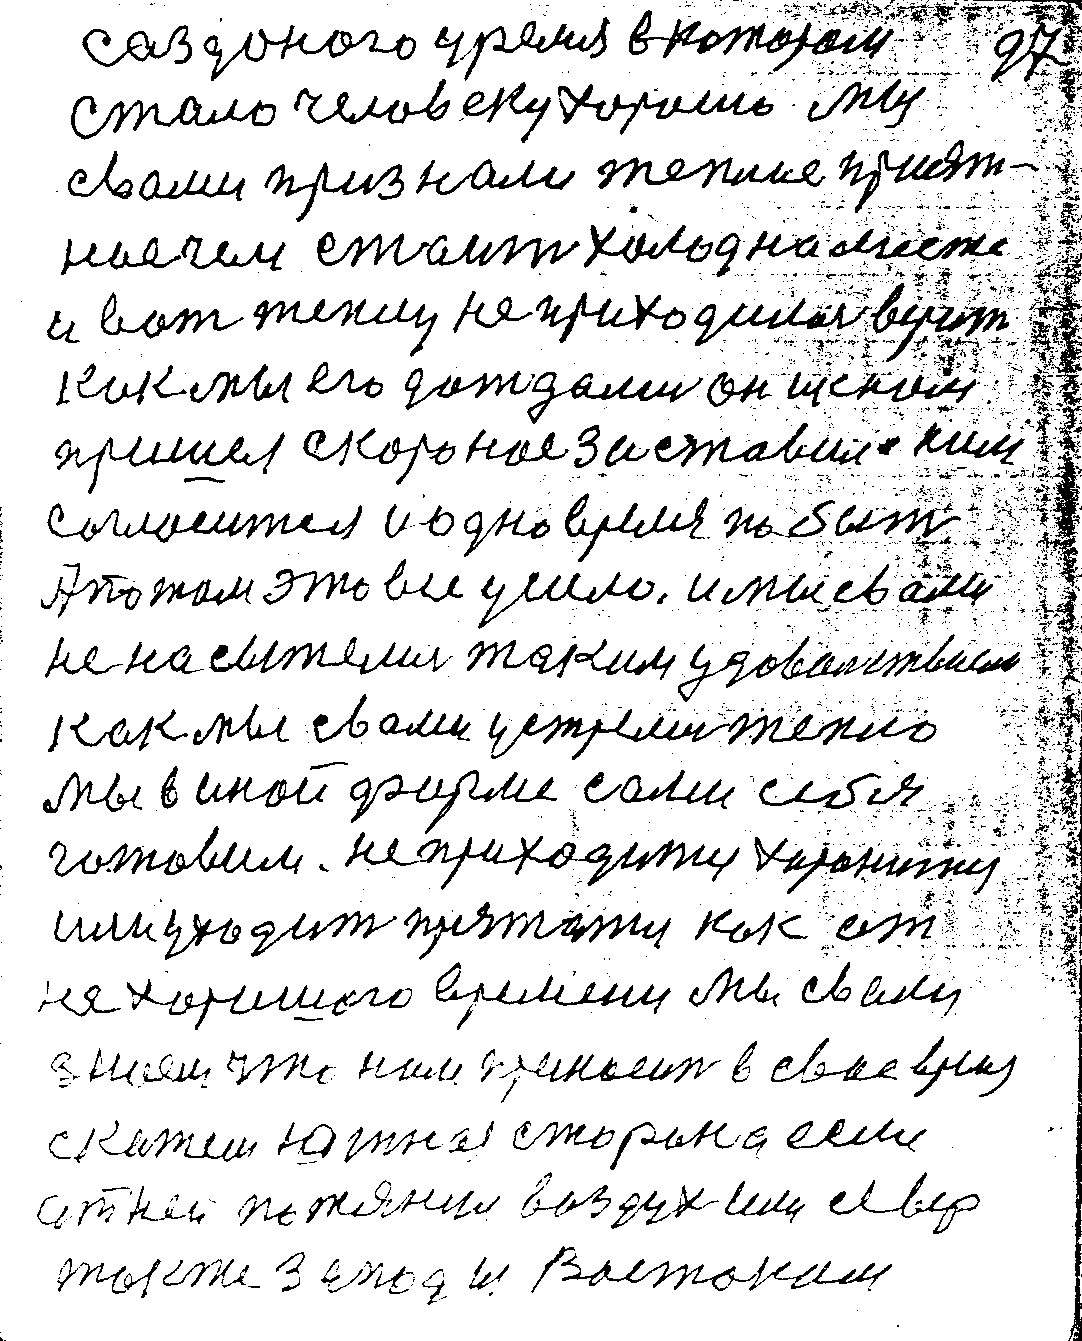 создоного время в котором 97
стало человеку хорошо мы
свами признали теплае прият-
ное чем стаит холод на месте
и вот теплу не приходилося
как мы его дождали он к нам
пришел скороное заставил к ним
согласится и одно время побыт
А потом это все ушло. и мы свами
не насытелися таким удоволствием
как мы свами устрели тепло
мы в иной форме сами себя
готовим. не приходит и хоронит и
или уходит прятат и как от
не хорошого времени мы свами
знаем что нам приносит в свое время
скажем южная сторона если
от ней потянул воздух или север
также запад и Востоком